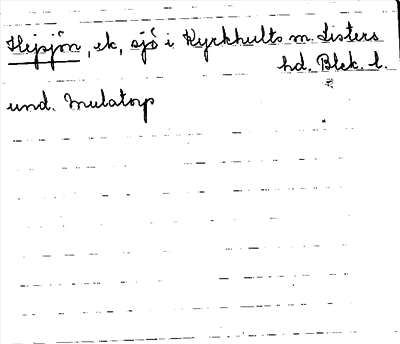 Hejsjön, ek, sjö i Kyrkhults m. Listers
hd. Blek. l.
und. Mulatorp